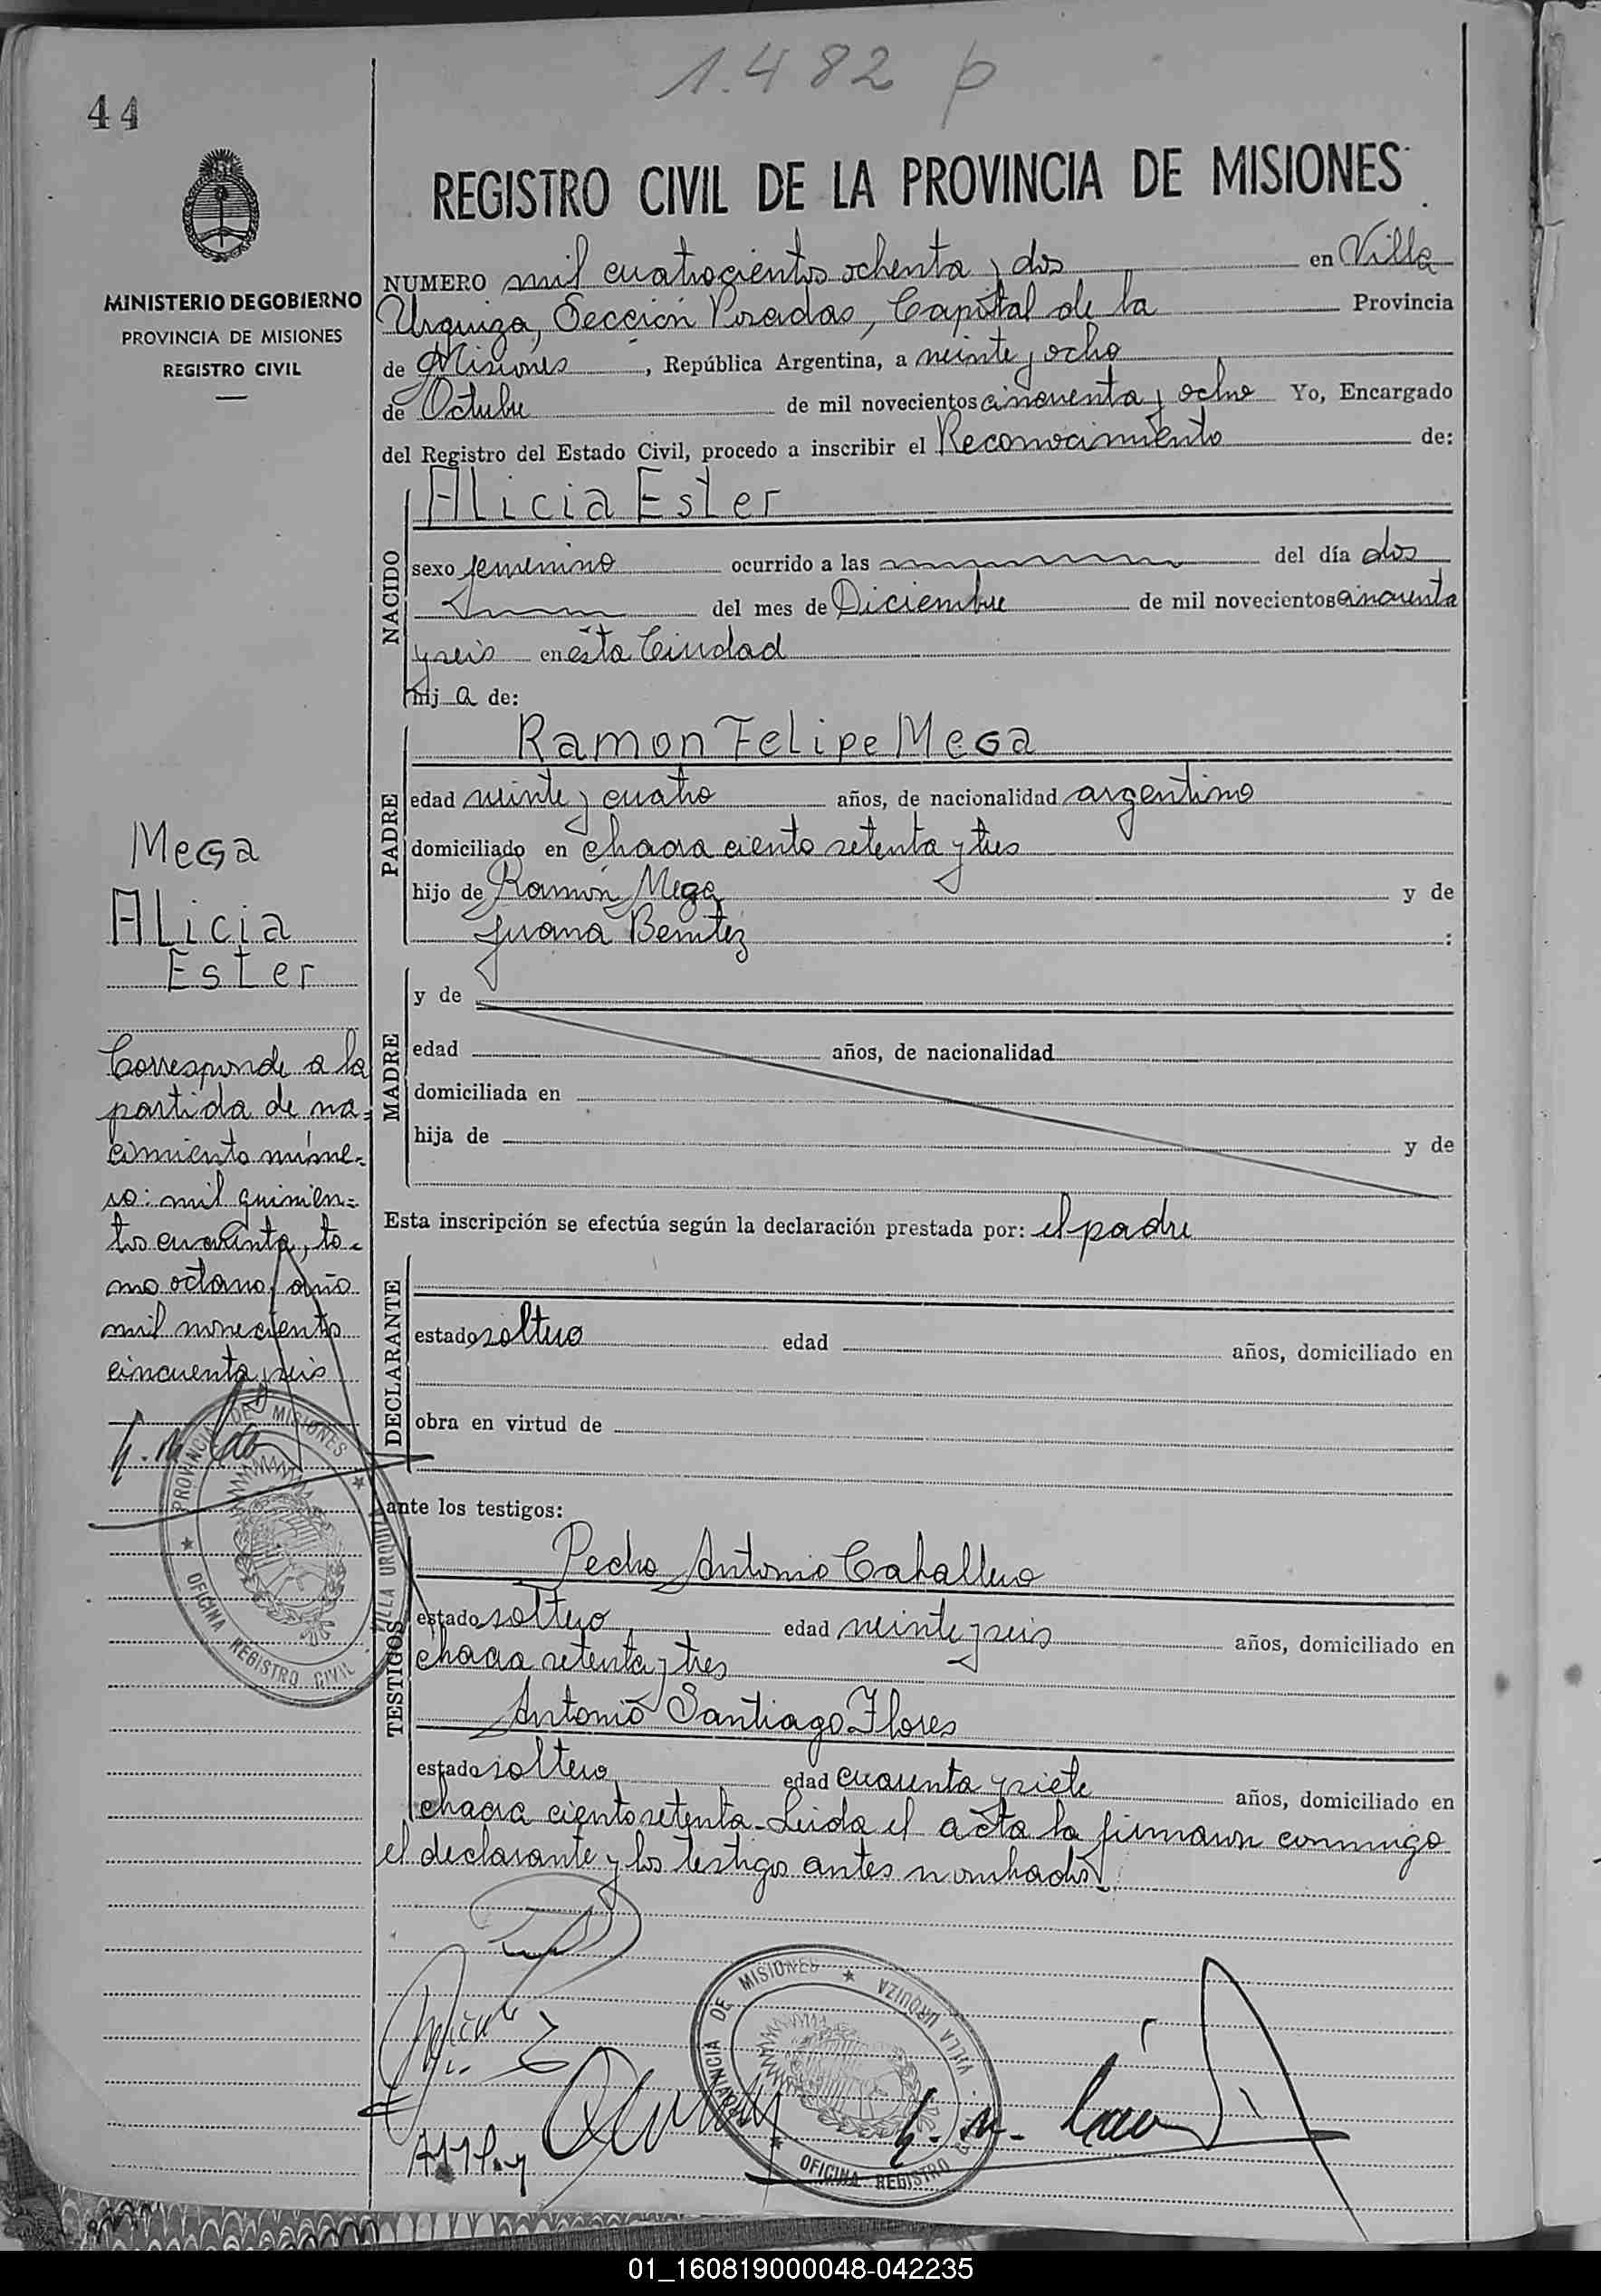 1.482 p
44
REGISTRO CIVIL DE LA PROVINCIA DE MISIONES
MINISTERIO DE GOBIERNO
PROVINCIA DE MISIONES
REGISTRO CIVIL
NUMERO mil cuatrocientos ochenta y dos en Villa
Urquiza, Sección Posadas, Capital de la Provincia
de Misiones, República Argentina, a veinte y ocho
de Octubre de mil novecientos cincuenta y ocho Yo, Encargado
del Registro del Estado Civil, procedo a inscribir el Reconocimiento de:
NACIDO
Alicia Ester
sexo femenino ocurrido a las del día dos
del mes de Diciembre de mil novecientos cincuenta
y seis en esta Ciudad
hij a de:
PADRE
Ramon Felipe Mega
edad veinte y cuatro años, de nacionalidad argentino
domiciliado en chacra ciento setenta y tres
hijo de Ramón Mega y de
Juana Benitez :
MADRE
y de
edad años, de nacionalidad
domiciliada en
hija de y de
Esta inscripción se efectúa según la declaración prestada por: el padre
DECLARANTE
estado soltero edad años, domiciliado en
obra en virtud de
ante los testigos:
TESTIGOS
Pedro Antonio Caballero
estado soltero edad veinte y seis años, domiciliado en
chacra setenta y tres
Antonio Santiago Flores
estado soltero edad cuarenta y siete años, domiciliado en
chacra ciento setenta. Leida el acta la firmaron conmigo
el declarante y los testigos antes nombrados.
Mega
Alicia
Ester
Corresponde a la
partida de na=
cimiento núme=
ro: mil quinien=
tos cuarenta, to=
mo octavo, año
mil novecientos
cincuenta y seis
PROVINCIA DE MISIONES
VILLA URQUIZA
OFICINA REGISTRO CIVIL
PROVINCIA DE MISIONES
VILLA URQUIZA
OFICINA REGISTRO
01_160819000048-042235